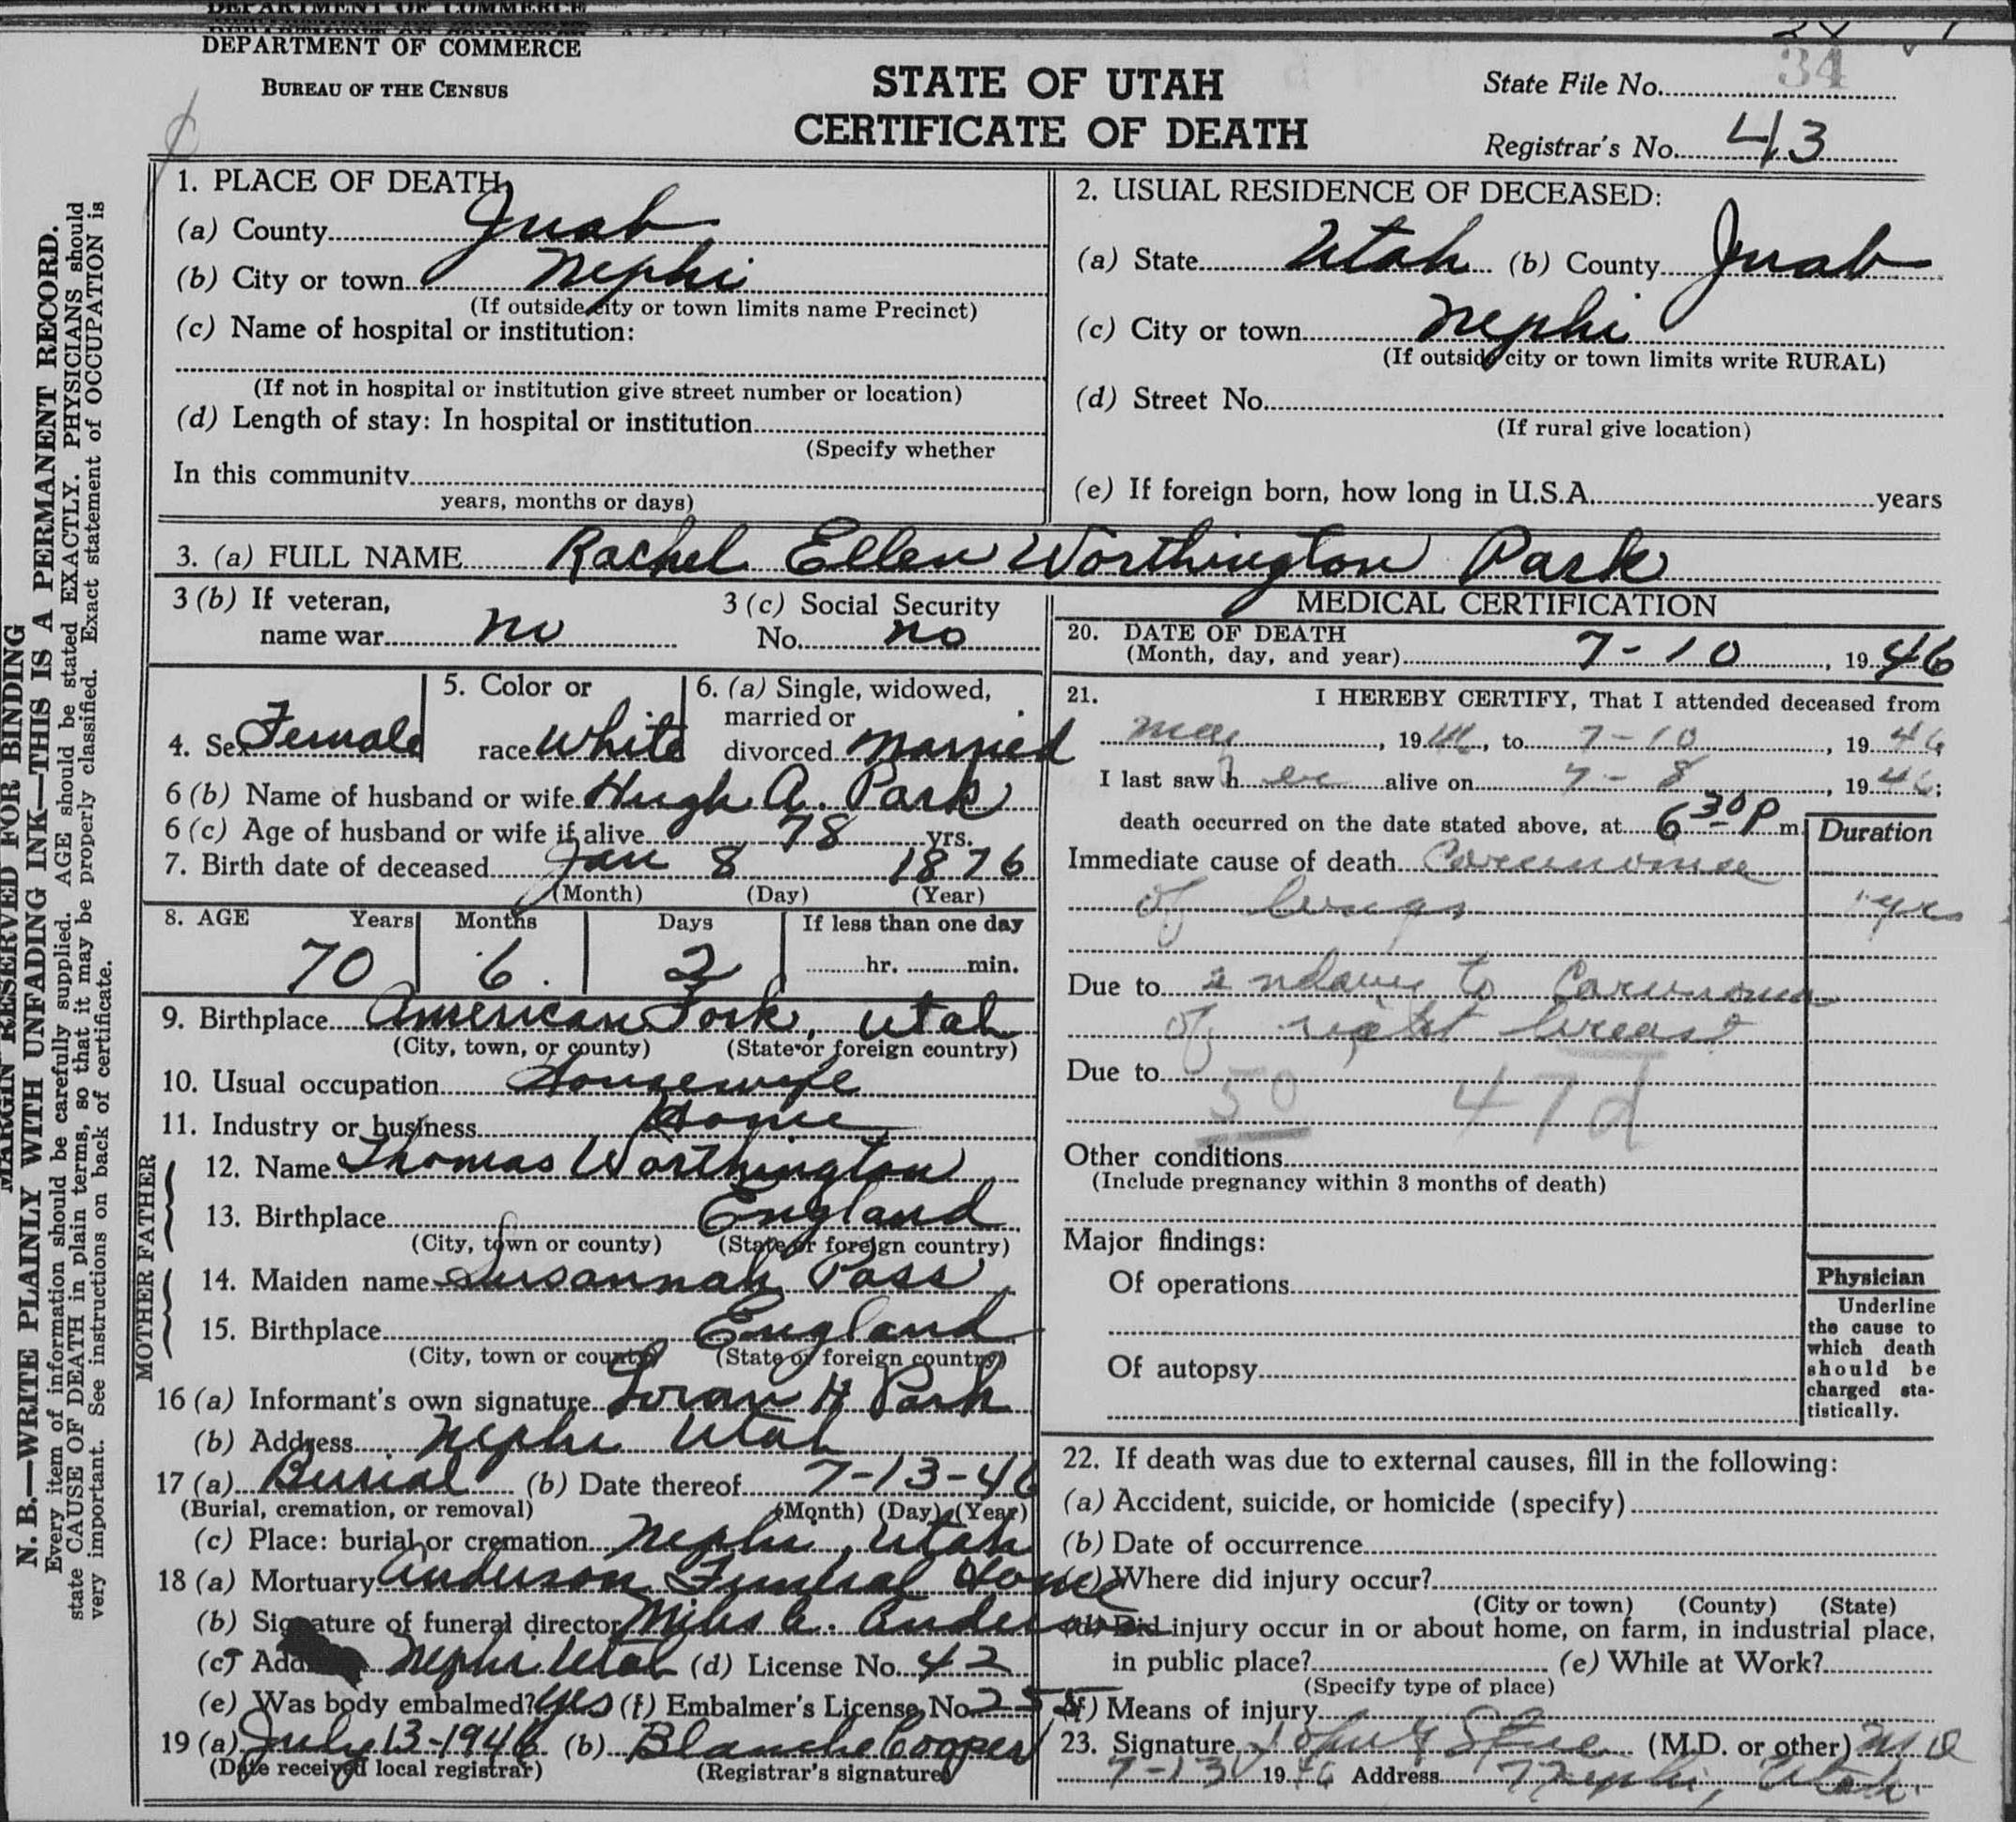 DEPARTMENT OF COMMERCE
DEPARTMENT OF COMMERCE
BUREAU OF THE CENSUS
STATE OF UTAH
CERTIFICATE OF DEATH
State File No. 34
Registrar's No. 43
MARGIN RESERVED FOR BINDING
N. B.—WRITE PLAINLY WITH UNFADING INK—THIS IS A PERMANENT RECORD.
Every item of information should be carefully supplied. AGE should be stated EXACTLY. PHYSICIANS should
state CAUSE OF DEATH in plain terms, so that it may be properly classified. Exact statement of OCCUPATION is
very important. See instructions on back of certificate.
1. PLACE OF DEATH
(a) County Juab
(b) City or town Nephi
(If outside city or town limits name Precinct)
(c) Name of hospital or institution:
(If not in hospital or institution give street number or location)
(d) Length of stay: In hospital or institution
(Specify whether
In this community
years, months or days)
2. USUAL RESIDENCE OF DECEASED:
(a) State Utah (b) County Juab
(c) City or town Nephi
(If outside city or town limits write RURAL)
(d) Street No.
(If rural give location)
(e) If foreign born, how long in U.S.A. years
3. (a) FULL NAME Rachel Ellen Worthington Park
3 (b) If veteran,
name war no
3 (c) Social Security
No. no
4. Sex Female
5. Color or
race White
6. (a) Single, widowed,
married or
divorced married
6 (b) Name of husband or wife Hugh A. Park
6 (c) Age of husband or wife if alive 78 yrs.
7. Birth date of deceased Jan 8 1876
(Month) (Day) (Year)
8. AGE Years Months Days If less than one day
70 6 2 hr. min.
9. Birthplace American Fork, Utah
(City, town, or county) (State or foreign country)
10. Usual occupation Housewife
11. Industry or business Home
FATHER
12. Name Thomas Worthington
13. Birthplace England
(City, town or county) (State or foreign country)
MOTHER
14. Maiden name Susannah Pass
15. Birthplace England
(City, town or county) (State or foreign country)
16 (a) Informant's own signature Loran H Park
(b) Address Nephi Utah
17 (a) Burial (b) Date thereof 7-13-46
(Burial, cremation, or removal) (Month) (Day) (Year)
(c) Place: burial or cremation Nephi, Utah
18 (a) Mortuary Anderson Funeral Home
(b) Signature of funeral director Miles A. Anderson
(c) Address Nephi Utah (d) License No. 42
(e) Was body embalmed? Yes (f) Embalmer's License No. 255
19 (a) July 13-1946 (b) Blanche Cooper
(Date received local registrar) (Registrar's signature)
MEDICAL CERTIFICATION
20. DATE OF DEATH
(Month, day, and year) 7-10, 1946
21. I HEREBY CERTIFY, That I attended deceased from
May, 19, to 7-10, 1946
I last saw her alive on 7-8, 1946;
death occurred on the date stated above, at 6 30 P m.
Duration
Immediate cause of death Carcinoma
of lungs yrs
Due to 2ndary to Carcinoma
of right breast
Due to
50 47d
Other conditions
(Include pregnancy within 3 months of death)
Major findings:
Of operations
Of autopsy
Physician
Underline
the cause to
which death
should be
charged sta-
tistically.
22. If death was due to external causes, fill in the following:
(a) Accident, suicide, or homicide (specify)
(b) Date of occurrence
(c) Where did injury occur?
(City or town) (County) (State)
(d) Did injury occur in or about home, on farm, in industrial place,
in public place? (e) While at Work?
(Specify type of place)
(f) Means of injury
23. Signature John (M.D. or other) MD
7-13 1946 Address Nephi, Utah.